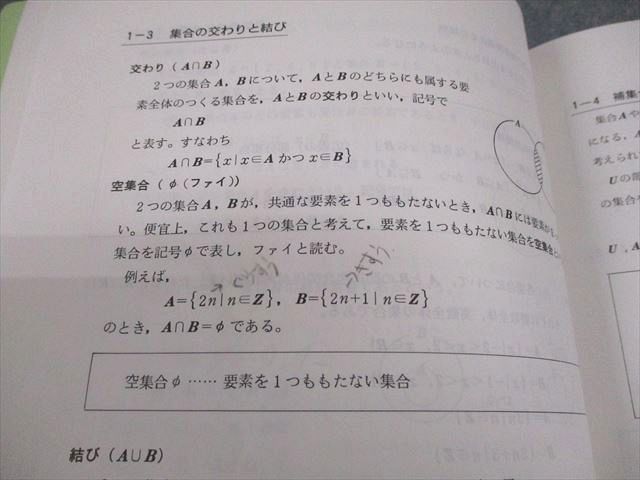 1－3　集合の交わりと結び
交わり（A∩B）
2つの集合A，Bについて，AとBのどちらにも属する要
素全体のつくる集合を，AとBの交わりといい，記号で
A∩B
と表す。すなわち
A∩B={x|x∈A かつ x∈B}
A
空集合（φ(ファイ)）
2つの集合A，Bが，共通な要素を1つももたないとき，A∩Bには要素が
い。便宜上，これも1つの集合と考えて，要素を1つももたない集合を空集合と
集合を記号φで表し，ファイと読む。
例えば，
ぐうすう
きすう
A={2n|n∈Z}，B={2n+1|n∈Z}
のとき，A∩B=φである。
空集合φ……要素を1つももたない集合
結び（A∪B）
1－4　補集合
集合Aや
になる。
考えられ
Uの部
の集合
U，A